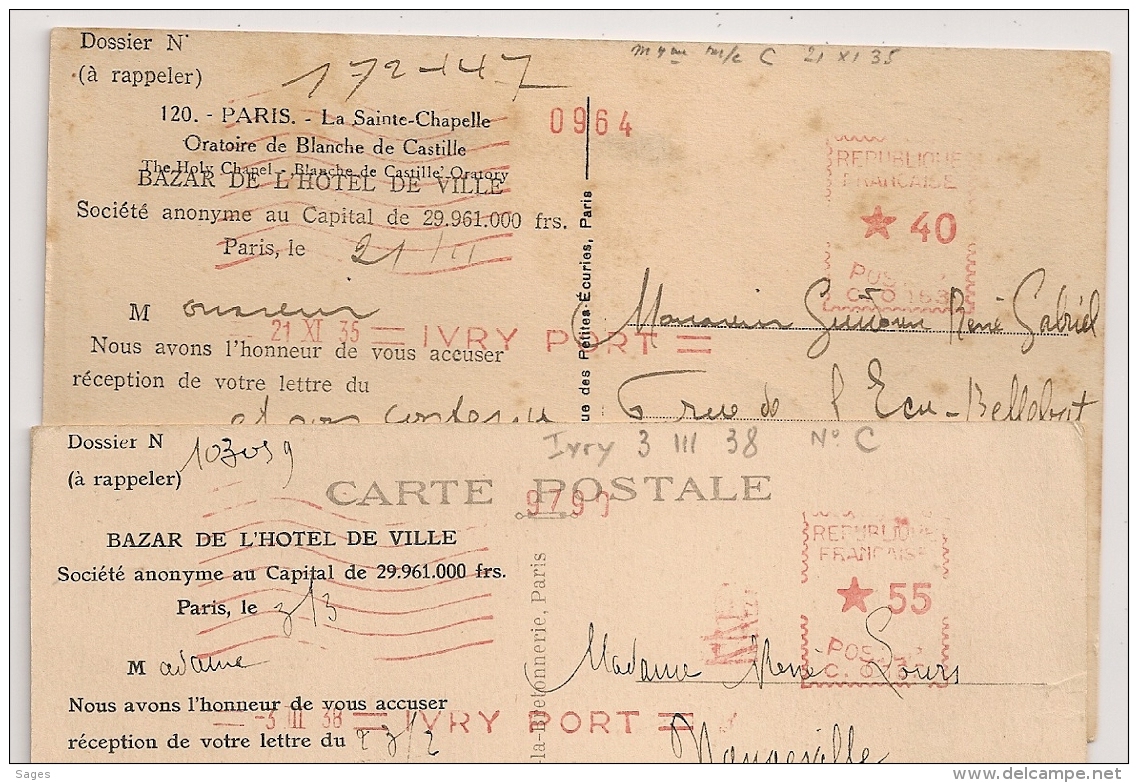 Dossier N°
(à rappeler) 172-147
120. - PARIS. - La Sainte-Chapelle
Oratoire de Blanche de Castille
The Holy Chapel - Blanche de Castille' Oratory
BAZAR DE L'HOTEL DE VILLE
Société anonyme au Capital de 29.961.000 frs.
Paris, le 21/11
Monsieur
Nous avons l'honneur de vous accuser
réception de votre lettre du
C 21 XI 35
0964
REPUBLIQUE
FRANCAISE
★ 40
POSTES
21 XI 35 = IVRY PORT =
ue des Petites-Écuries, Paris
Monsieur René Gabriel
6 rue de l'Ecu-
Dossier N 103059
(à rappeler)
Ivry 3 III 38 N° C
CARTE POSTALE
9790
BAZAR DE L'HOTEL DE VILLE
Société anonyme au Capital de 29.961.000 frs.
Paris, le 3/3
Madame
Nous avons l'honneur de vous accuser
réception de votre lettre du 23/2
REPUBLIQUE
FRANCAISE
★ 55
POSTES
-3 III 38 = IVRY PORT =
-la-Bretonnerie, Paris
Madame René Louis
Sages
delcampe.net